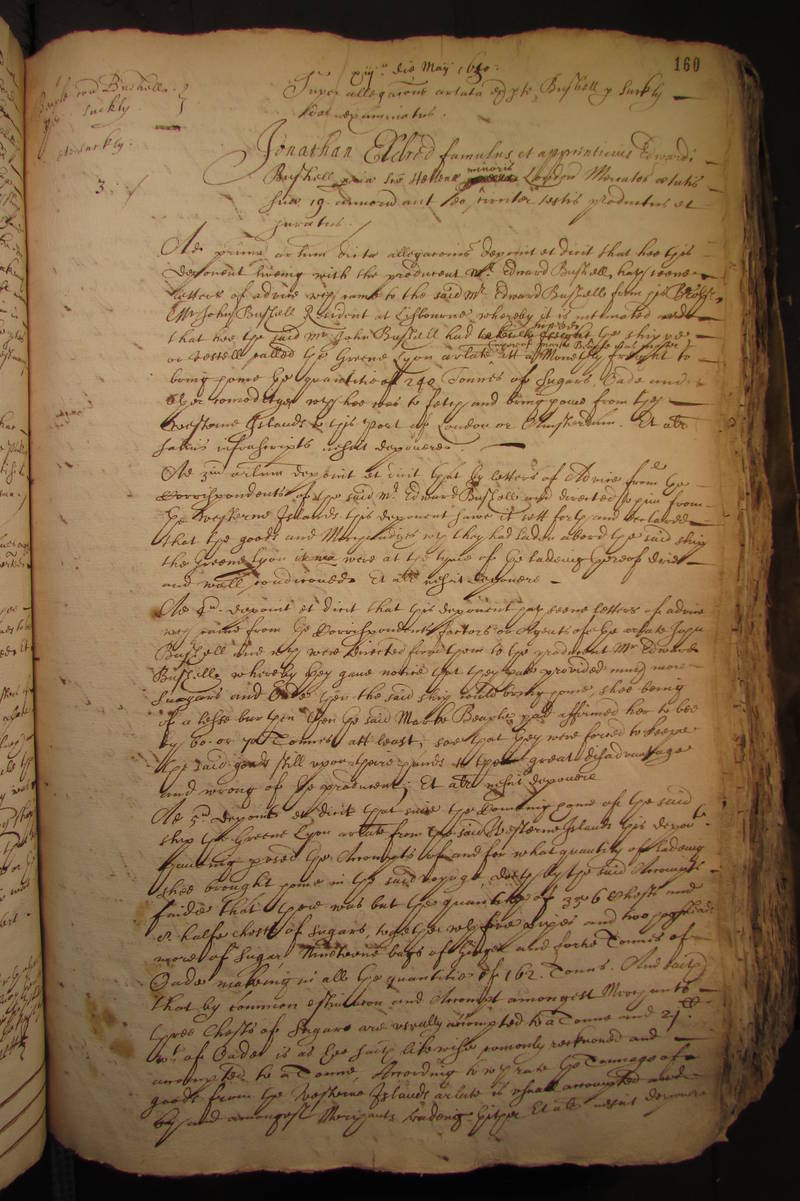 160
die May 1650.
Super allegatione arlata ex pte Bushell
examinatus.
3.
Jonathan Eldred famulus et apprenticius Edwardi
Bushell minoris London Mercator ætatis
suæ 19. annorum aut eo circiter testis productus et
juratus.
Ad primum artum dictæ allegationis deponit et dicit that hee this
deponent liveing with the producent Mr. Edward Bushell, hath seene
letters of advice wch came to the said Mr Edward Bushell from his
Mr John Bushell Resident at Lisbourne, whereby it is intimated
that hee the said Mr John Bushell had the shipp
or vessell called the Greene Lyon arlate att a Monethly fraight to
bring home the quantitie of 240 Tonnes of Sugars, Oade and
other comodityes wch hee was to fetch and bring home from the
Westerne Islands to this Port of London or Amsterdam. Et alr
salvis infrascriptis nescit deponere.
Ad 3um artum deponit et dicit that by letters of Advice from the
Correspondents of the said Mr. Edward Bushell and directed to him from
the Westerne Islands this deponent saw it sett forth and declared
that the goods and Merchandizes wch they had laden aboord the said ship
the Greene Lyon were at the tyme of the ladeing thereof dried
and well conditioned. Et alr nescit deponere
Ad 4um. deponit et dicit that this deponent hath seene letters of advice
wch came from the Correspondents factors or Agents of the arlate John
Bushell and wch were directed from them to the producent Mr Edward
Bushell, whereby they gave notice that they had provided much more
Sugars and Oade then the said ship could bring home, shee being
of a lesse burthen then the said Master had affirmed her to bee
by 60. or 70 Tonnes att least, soe that they were forced to keepe
the said goods still upon their hands to the great disadvantage
and wrong of the producent; Et alr nescit deponere
Ad 5um deponit et dicit that since the comming home of the said
ship the Greene Lyon arlate from the said Westerne Islands this depont
haveing perused the Accompts of and for what quantity of ladeing
shee brought home in the said voyage, doth by the said Accompts
finde that there was but the quantitie of 336 Chests and
halfe chests of sugars, together with five pipes and two hogsheads
more of Sugar Nineteene bags of Ginger and fortie Tonnes of
Oade making in all the quantitie of 162. Tonns. And saith
that by common estimation and Accompt amongest Merchants
three Chests of Sugars are usually accompted to a Tonne and
wt of Oade is as hee saith likewise comonly reckoned and
accompted to a Tonne, According to wch rate the Tonnage of
goods from the Westerne Islands arlate is usually accompted and
by and amongest Merchants tradeing thither Et alr nescit deponere